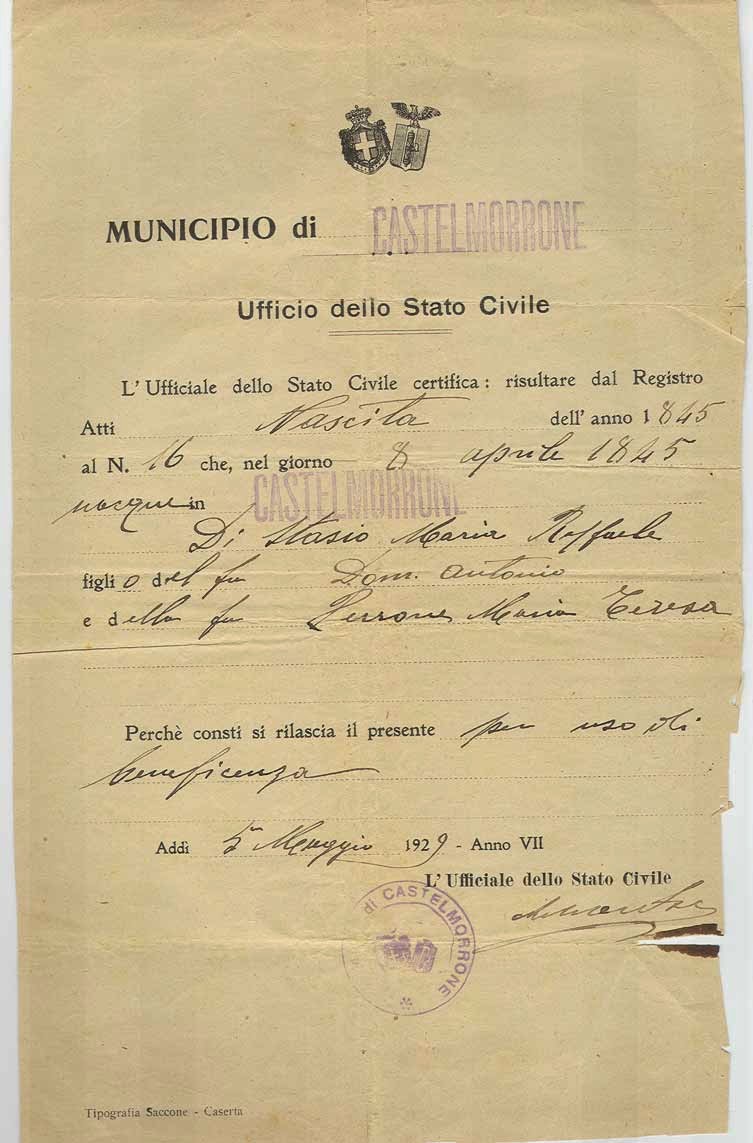 MUNICIPIO di CASTELMORRONE
Ufficio dello Stato Civile
L' Ufficiale dello Stato Civile certifica: risultare dal Registro
Atti Nascita dell' anno 1845
al N. 16 che, nel giorno 8 aprile 1845
nacque in CASTELMORRONE
Di Stasio Maria Raffaele
figlio del fu Dom. Antonio
e della fu Maria Teresa
Perchè consti si rilascia il presente per uso di
beneficenza
Addì 5 Maggio 1929 - Anno VII
L' Ufficiale dello Stato Civile
di CASTELMORRONE
Tipografia Saccone - Caserta